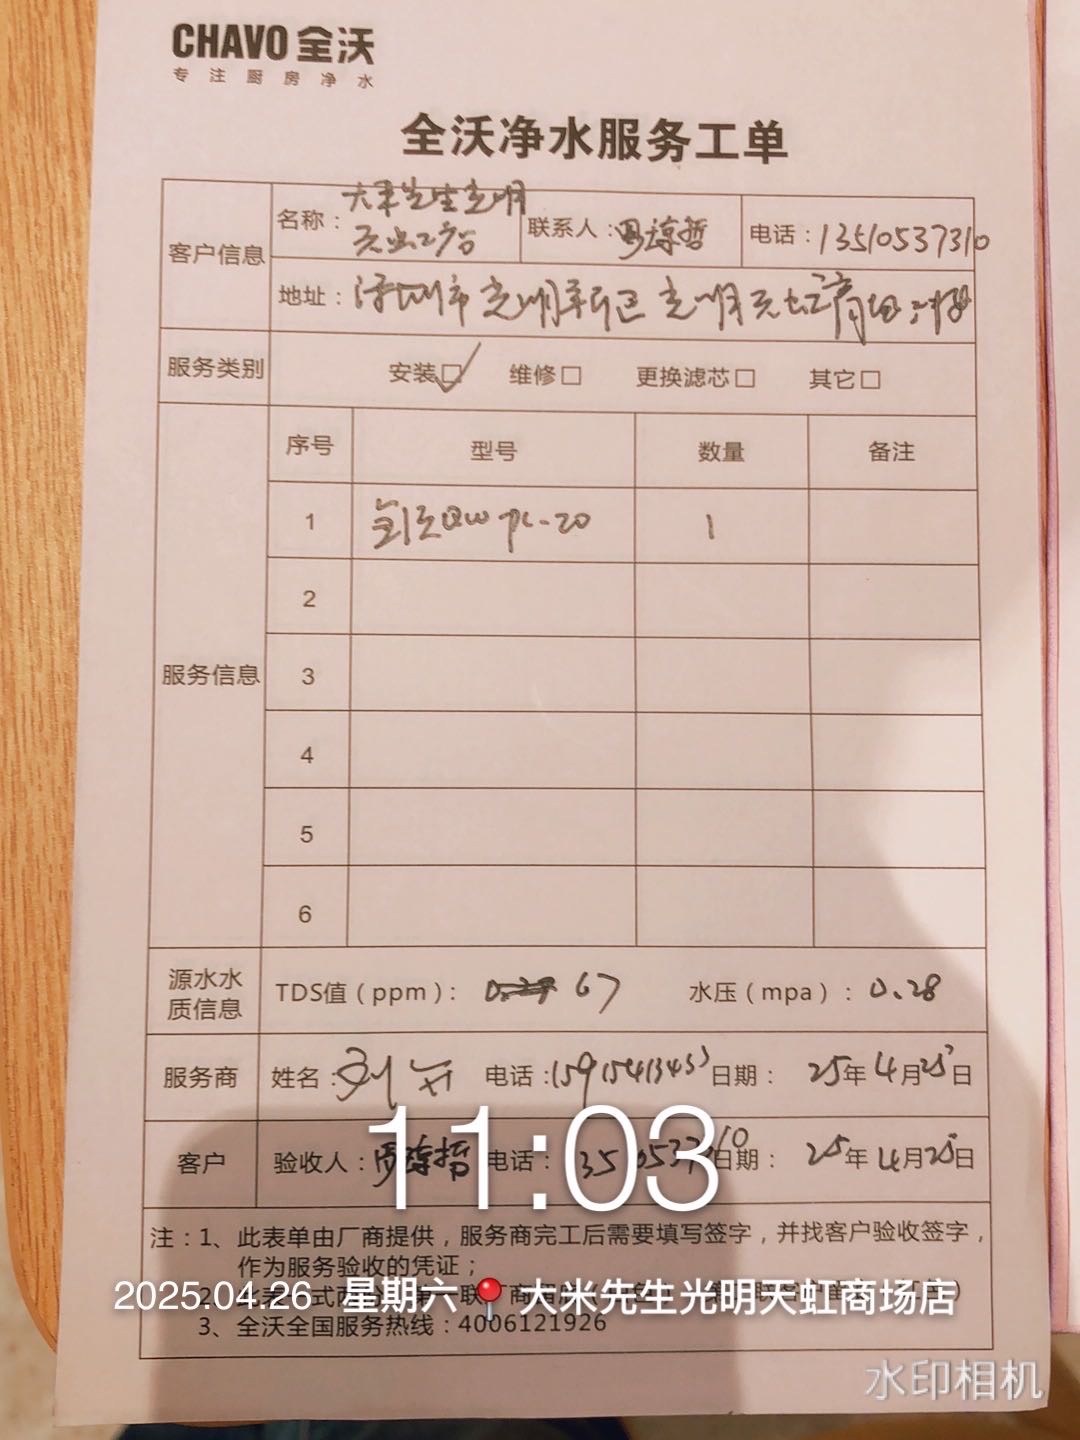 CHAVO 全沃
专注厨房净水
全沃净水服务工单
客户信息
名称：大米先生光明
联系人：
电话：13510537310
地址：深圳市光明新区光明天虹商场
服务类别 安装☑ 维修□ 更换滤芯□ 其它□
服务信息
序号 型号 数量 备注
1 全沃QW PC-20 1
2
3
4
5
6
源水水质信息
TDS值（ppm）： 67 水压（mpa）：0.28
服务商 姓名：刘 电话：15915413453 日期： 25年4月25日
客户 验收人： 电话： 日期： 25年4月25日
11:03
注：1、此表单由厂商提供，服务商完工后需要填写签字，并找客户验收签字，
作为服务验收的凭证；
2、
2025.04.26 星期六 大米先生光明天虹商场店
3、全沃全国服务热线：4006121926
水印相机